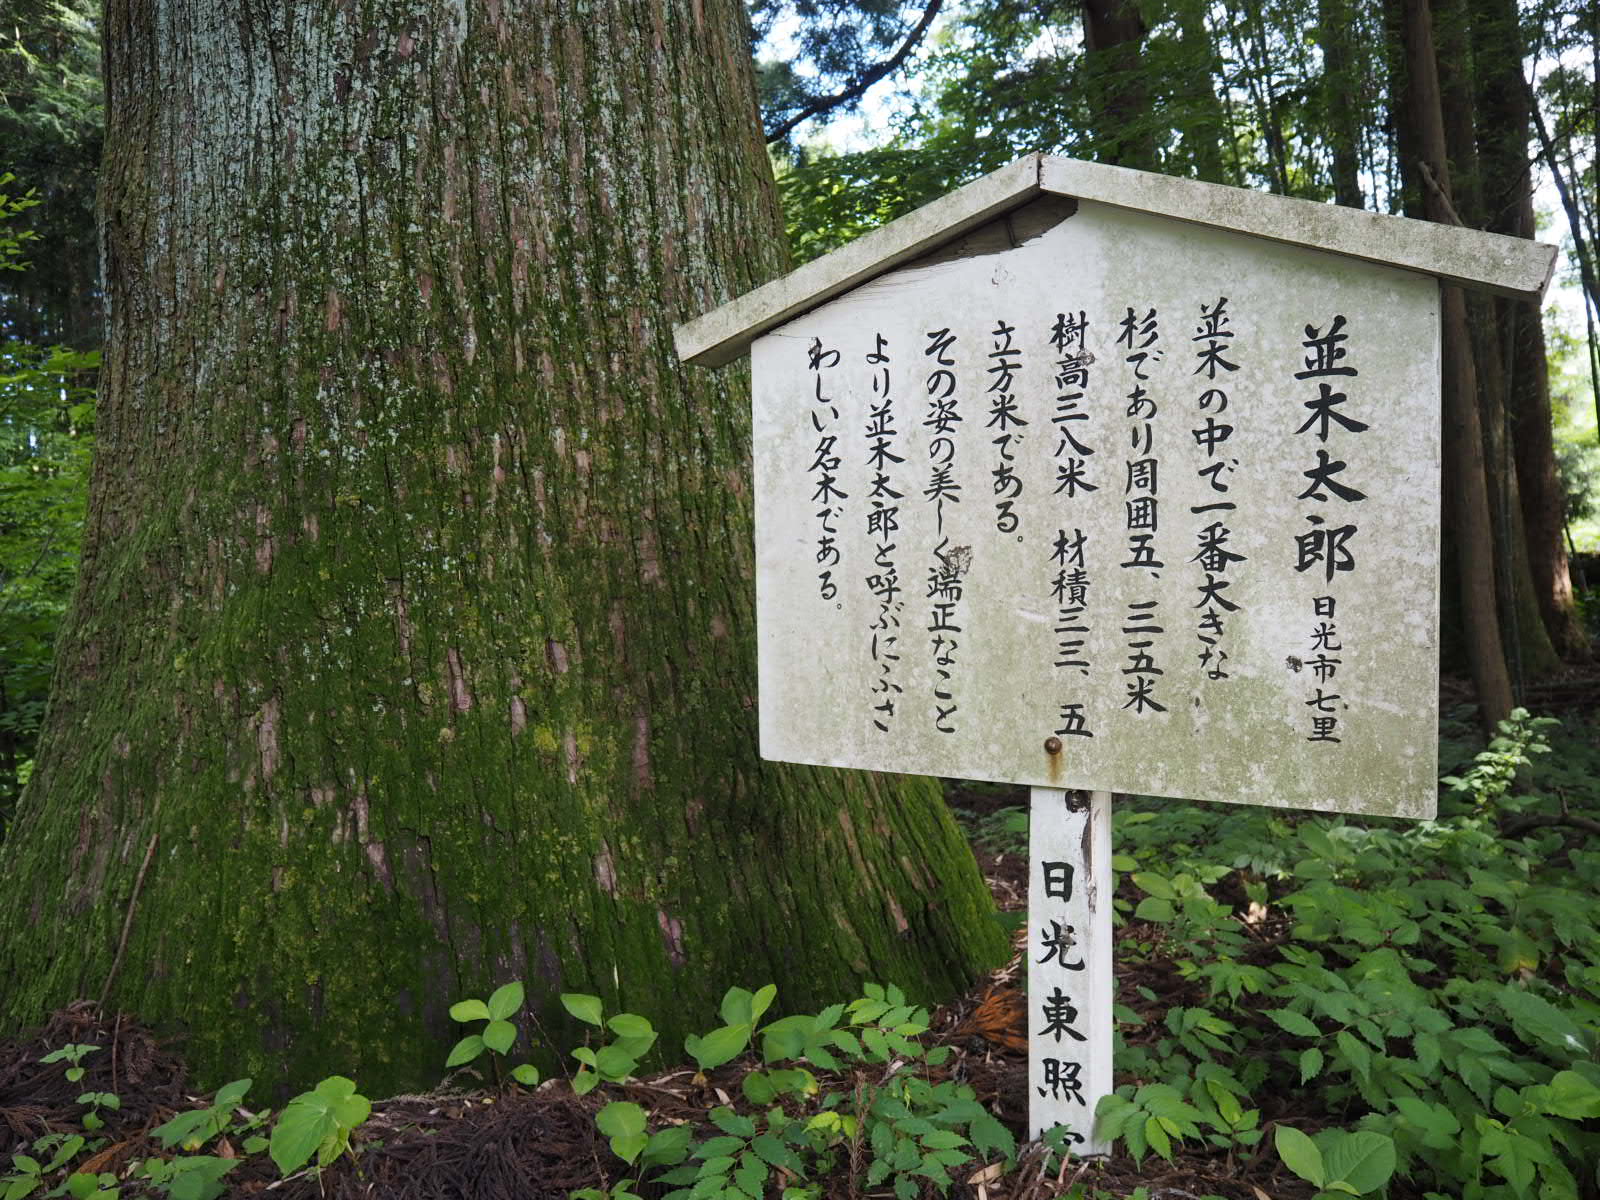 並木太郎 日光市七里
並木の中で一番大きな
杉であり周囲五、三五米
樹高三八米 材積三三、五
立方米である。
その姿の美しく端正なこと
より並木太郎と呼ぶにふさ
わしい名木である。
日光東照